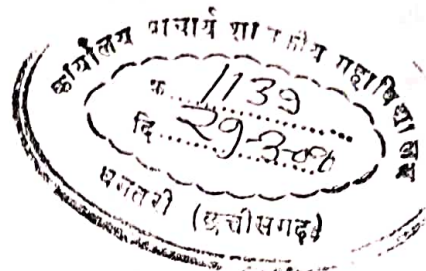 कार्यालय प्राचार्य शासकीय महाविद्यालय
क्र. 1139
दि. 29-3-06
धमतरी (छत्तीसगढ़)